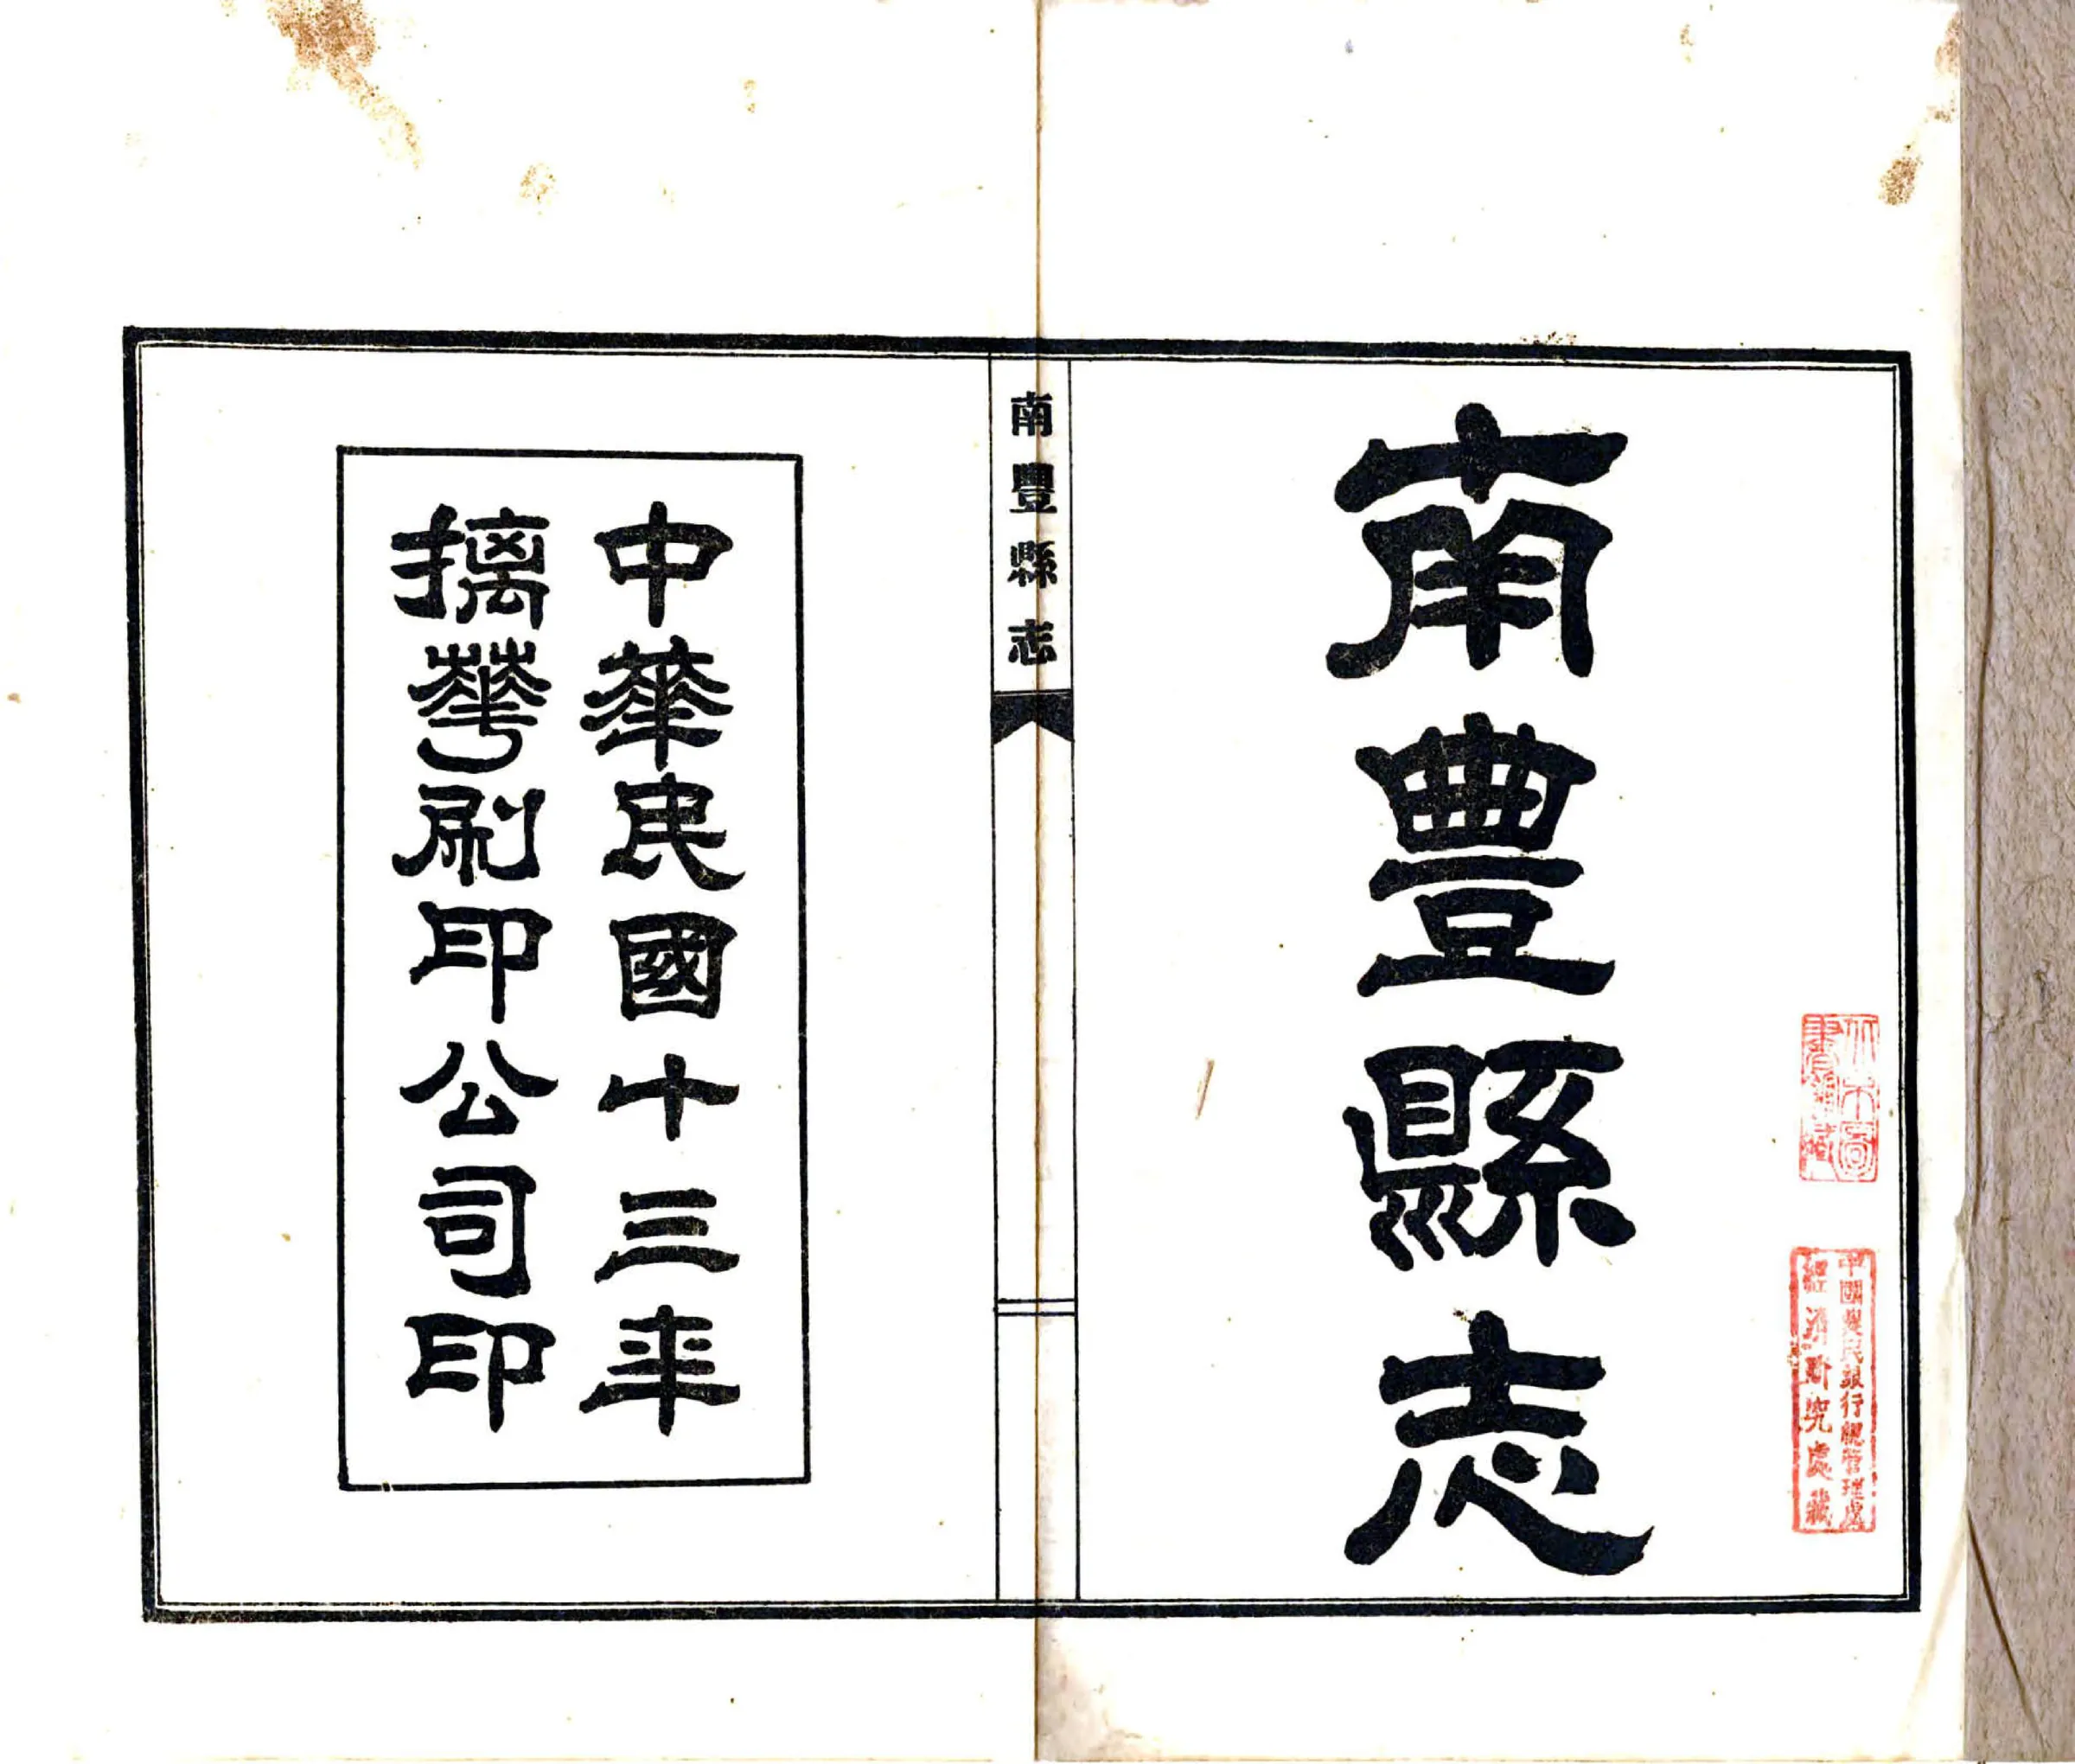 南豐縣志
中國農民銀行總管理處
經濟研究處藏
南豐縣志
中華民國十三年
摛華刷印公司印